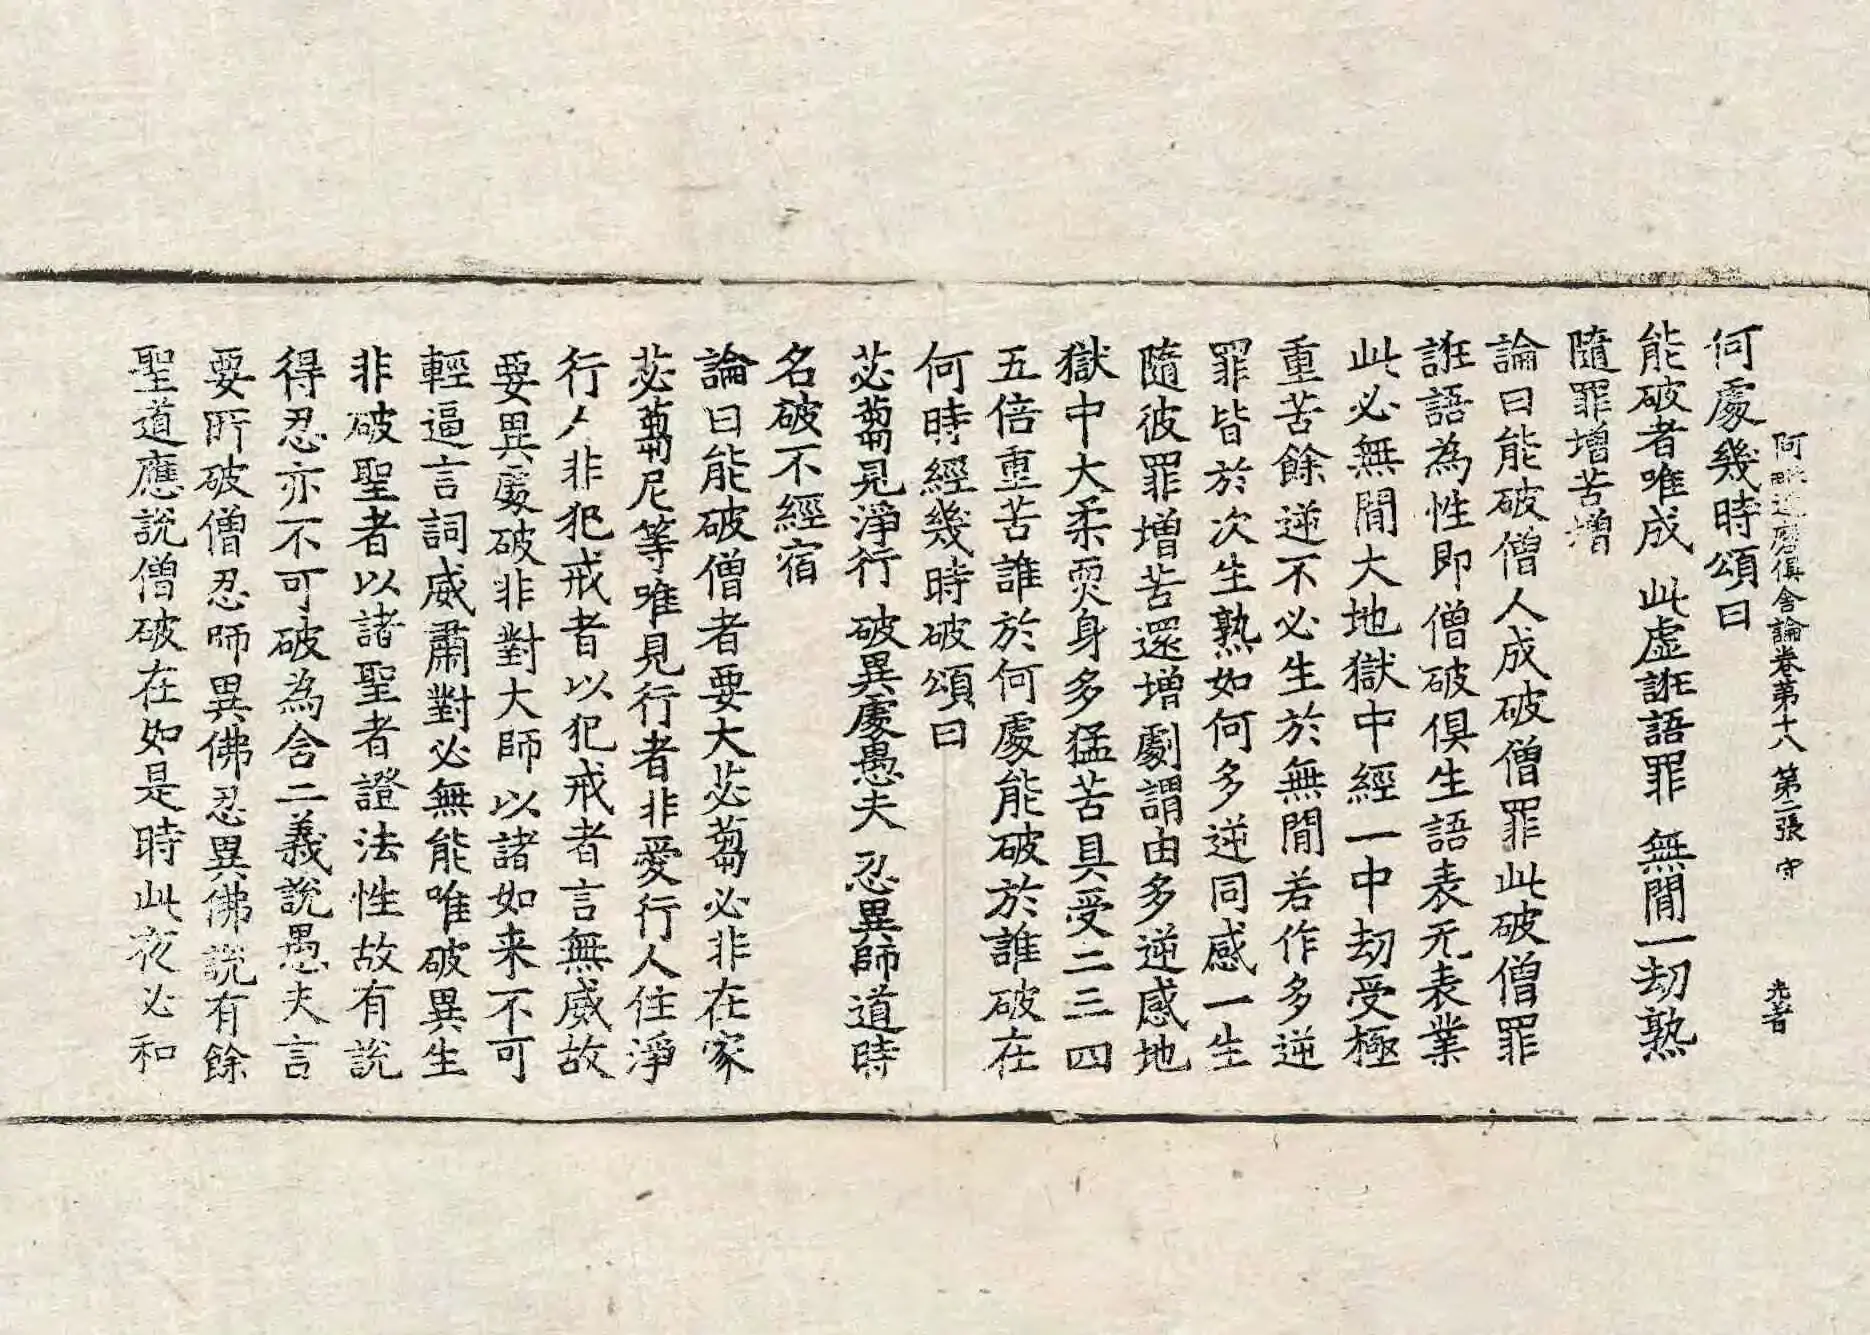 阿毗達磨俱舍論卷第十八 第二張 守
何處幾時頌曰
能破者唯成 此虛誑語罪 無間一劫熟
隨罪增苦增
論曰能破僧人成破僧罪此破僧罪
誑語為性即僧破俱生語表无表業
此必無間大地獄中經一中劫受極
重苦餘逆不必生於無間若作多逆
罪皆於次生熟如何多逆同感一生
隨彼罪增苦還增劇謂由多逆感地
獄中大柔耎身多猛苦具受二三四
五倍重苦誰於何處能破於誰破在
何時經幾時破頌曰
苾蒭見淨行 破異處愚夫 忍異師道時
名破不經宿
論曰能破僧者要大苾蒭必非在家
苾蒭尼等唯見行者非愛行人住淨
行人非犯戒者以犯戒者言無威故
要異處破非對大師以諸如来不可
輕逼言詞威肅對必無能唯破異生
非破聖者以諸聖者證法性故有說
得忍亦不可破為含二義說愚夫言
要所破僧忍師異佛忍異佛說有餘
聖道應說僧破在如是時此夜必和